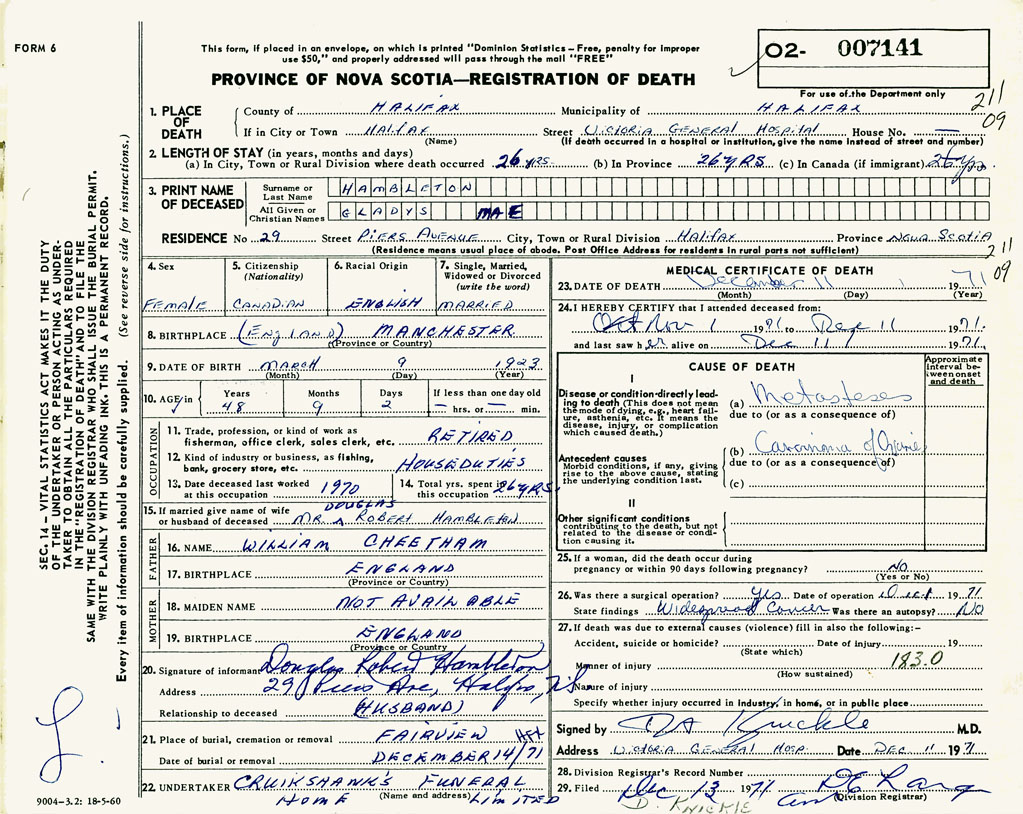 FORM 6
This form, if placed in an envelope, on which is printed "Dominion Statistics – Free, penalty for improper
use $50," and properly addressed will pass through the mail "FREE"
PROVINCE OF NOVA SCOTIA—REGISTRATION OF DEATH
02- 007141
For use of the Department only
211
09
1. PLACE OF DEATH
County of HALIFAX Municipality of HALIFAX
If in City or Town HALIFAX Street VICTORIA GENERAL HOSPITAL House No. —
(Name) (If death occurred in a hospital or institution, give the name instead of street and number)
2. LENGTH OF STAY (in years, months and days)
(a) In City, Town or Rural Division where death occurred 26 YRS (b) In Province 26 YRS (c) In Canada (if immigrant) 26 yrs
3. PRINT NAME OF DECEASED
Surname or Last Name HAMBLETON
All Given or Christian Names GLADYS MAE
RESIDENCE No 29 Street PIERS AVENUE City, Town or Rural Division HALIFAX Province NOVA SCOTIA
(Residence means usual place of abode. Post Office Address for residents in rural parts not sufficient)
211
09
4. Sex FEMALE
5. Citizenship (Nationality) CANADIAN
6. Racial Origin ENGLISH
7. Single, Married, Widowed or Divorced (write the word) MARRIED
8. BIRTHPLACE (ENGLAND) MANCHESTER
(Province or Country)
9. DATE OF BIRTH MARCH 9 1923
(Month) (Day) (Year)
10. AGE in Years 48 Months 9 Days 2 If less than one day old — hrs. or — min.
OCCUPATION
11. Trade, profession, or kind of work as
fisherman, office clerk, sales clerk, etc. RETIRED
12. Kind of industry or business, as fishing,
bank, grocery store, etc. HOUSEDUTIES
13. Date deceased last worked
at this occupation 1970
14. Total yrs. spent in
this occupation 26 YRS
15. If married give name of wife
or husband of deceased MR. DOUGLAS ROBERT HAMBLETON
FATHER
16. NAME WILLIAM CHEETHAM
17. BIRTHPLACE ENGLAND
(Province or Country)
MOTHER
18. MAIDEN NAME NOT AVAILABLE
19. BIRTHPLACE ENGLAND
(Province or Country)
20. Signature of informant Douglas Robert Hambleton
Address 29 Piers Ave, Halifax, N.S.
Relationship to deceased (HUSBAND)
21. Place of burial, cremation or removal FAIRVIEW HFX
Date of burial or removal DECEMBER 14/71
22. UNDERTAKER CRUIKSHANK'S FUNERAL
HOME (Name and address) LIMITED
MEDICAL CERTIFICATE OF DEATH
23. DATE OF DEATH December 11 1971
(Month) (Day) (Year)
24. I HEREBY CERTIFY that I attended deceased from:
Nov 1 1971 to Dec 11 1971.
and last saw her alive on Dec 11 1971.
CAUSE OF DEATH
Approximate interval between onset and death
I
Disease or condition directly leading to death (This does not mean
the mode of dying, e.g., heart failure, asthenia, etc. It means the
disease, injury, or complication
which caused death.)
(a) Metastases
due to (or as a consequence of)
Antecedent causes
Morbid conditions, if any, giving
rise to the above cause, stating
the underlying condition last.
(b) Carcinoma of Ovaries
due to (or as a consequence of)
(c)
II
Other significant conditions
contributing to the death, but not
related to the disease or condition causing it.
25. If a woman, did the death occur during
pregnancy or within 90 days following pregnancy? NO
(Yes or No)
26. Was there a surgical operation? yes. Date of operation 1971
State findings Widespread Cancer Was there an autopsy? No
27. If death was due to external causes (violence) fill in also the following:–
Accident, suicide or homicide? Date of injury 19
(State which)
Manner of injury 183.0
(How sustained)
Nature of injury
Specify whether injury occurred in industry, in home, or in public place
Signed by D A Knickle M.D.
Address VICTORIA GENERAL HOSP. Date DEC 11 1971
28. Division Registrar's Record Number
29. Filed Dec 13 1971
(Division Registrar)
D. KNICKLE
SEC. 14 – VITAL STATISTICS ACT MAKES IT THE DUTY
OF THE UNDERTAKER OR PERSON ACTING AS UNDERTAKER TO OBTAIN ALL THE PARTICULARS REQUIRED
IN THE "REGISTRATION OF DEATH" AND TO FILE THE
SAME WITH THE DIVISION REGISTRAR WHO SHALL ISSUE THE BURIAL PERMIT.
WRITE PLAINLY WITH UNFADING INK. THIS IS A PERMANENT RECORD.
Every item of information should be carefully supplied. (See reverse side for instructions.)
9004-3.2: 18-5-60